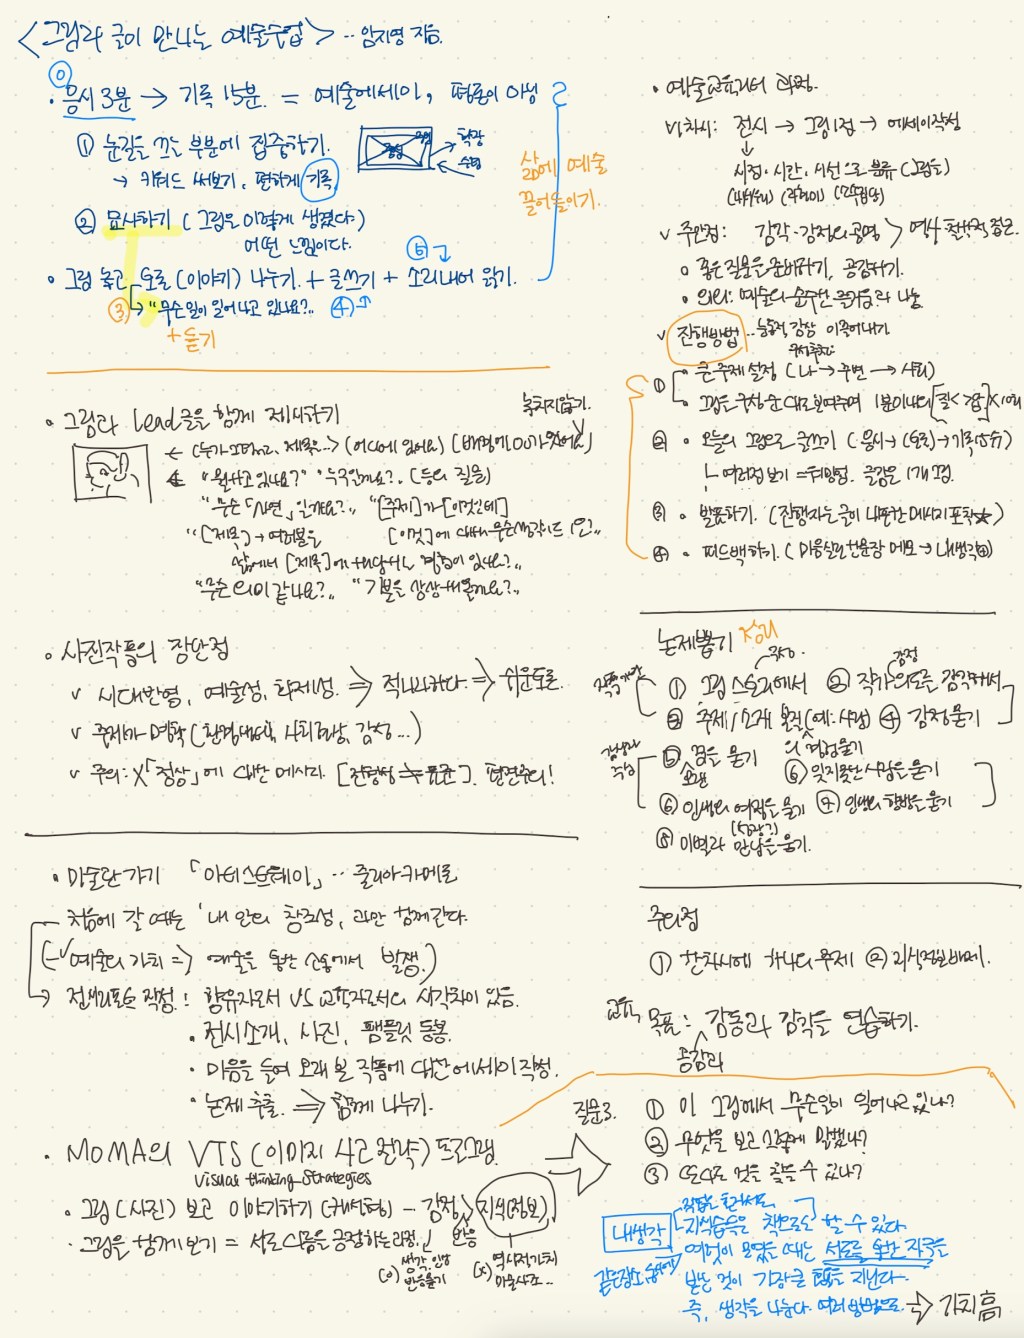 <그림과 글이 만나는 예술수업> ·· 임지영 지음.
⓪
· 응시 3분 → 기록 15분. = 예술에세이,
① 눈길을 끄는 부분에 집중하기.
→ 키워드 써보기, 편하게 기록
확장
② 묘사하기 (그림은 이렇게 생겼다.)
어떤 느낌이다.
삶에 예술
끌어들이기.
· 그림 놓고 토론(이야기) 나누기. + 글쓰기 + 소리내어 읽기.
③ → "무슨일이 일어나고 있나요?.. ④
+ 듣기
· 그림과 Lead글을 함께 제시하기
놓치지않기.
← (누가 그렸나요, 제목은..) (어디에 있어요) (배경에 00가 있어요)
← "뭘하고 있나요?" "누구인가요?, (등의 질문)
"무슨 「사연」인가요?.. "[주제]가 [이것인데]
"[제목] → 여러분을 [이것]에 대해 무슨생각이 드나요?..
삶에서 [제목]에 해당하는 경험이 있나요?..
"무슨 의미 같나요?.. "기분을 상상해볼까요?..
· 사진작품의 장단점
v 시대반영, 예술성, 화제성. ⇒ 적나라하다. ⇒ 쉬운토론.
v 주제가 명확 (환경, 사회 고발, 감정...)
v 주의: X「정상」에 대한 메시지. 편견주의!
· 미술관 가기 「아티스트데이」 ·· 줄리아카메론
처음에 갈 때는 '내 안의 창조성, 과만 함께간다.
(예술의 가치 ⇒ 예술을 통한 소통에서 발생.)
→ 전시리포트 작성: 향유자로서 VS 교육자로서의 시각차이 있음.
· 전시소개, 사진, 팸플릿 동봉.
· 마음을 들여 오래 본 작품에 대한 에세이 작성.
· 논제 추출. ⇒ 함께 나누기.
· MoMA의 VTS (이미지 사고 전략) 프로그램.
Visual thinking Strategies
· 그림(사진) 보고 이야기하기 -- 감정, 지식(정보)
· 그림을 함께 보기 = 서로 다름을 긍정하는 과정, 반응
(o) 생각, 감상
반응묻기
(x) 역사적가치
미술사조..
· 예술교육리더 과정.
v 1차시: 전시 → 그림 1점 → 에세이작성
시점·시간·시선으로 분류 (그림들)
v 주안점: 감각·감정의 공명
· 좋은 질문을 준비하기, 공감하기.
· 의의: 예술의 순수한 즐거움과 나눔
v 진행방법 ·· 능동적 감상 이끌어내기
① · 큰 주제 설정 (나 → 주변 → 사회)
· 그림은 구상순대로 보여주며 1분이내의
② · 오늘의 그림으로 글쓰기 (응시 → (토론) → 기록)
글감은 1개 그림.
③ · 발표하기. (진행자는 글이 내포한 메시지 포착★)
④ · 피드백하기. (마음실린 한문장 메모 → 내생각)
논제뽑기 정리
① 그림 스토리에서 ② 작가 의도는 감각해서
③ 주제/소재 본질 (예: 사랑) ④ 감정묻기
⑤ 꿈을 묻기
오랜
⑥ 잊지못한 사람을 묻기
⑥ 인생의 여정을 묻기 ⑦ 인생의 향방을 묻기
⑧ 이별과 만남을 묻기.
주의점
① 한차시에 하나의 주제 ② 지식정보배제.
교육 목표: 감동과 감각을 연습하기.
공감과
질문3.
① 이 그림에서 무슨일이 일어나고 있나?
② 무엇을 보고 그렇게 말했나?
③ 또 다른 것을 찾을 수 있나?
내생각
지식습득은 책으로도 할 수 있다.
같은장소
여럿이 모였을 때는 서로를 통한 자극을
받는 것이 가장 큰 힘을 지닌다.
즉, 생각을 나눈다. 여러 방법으로. ⇒ 가치高